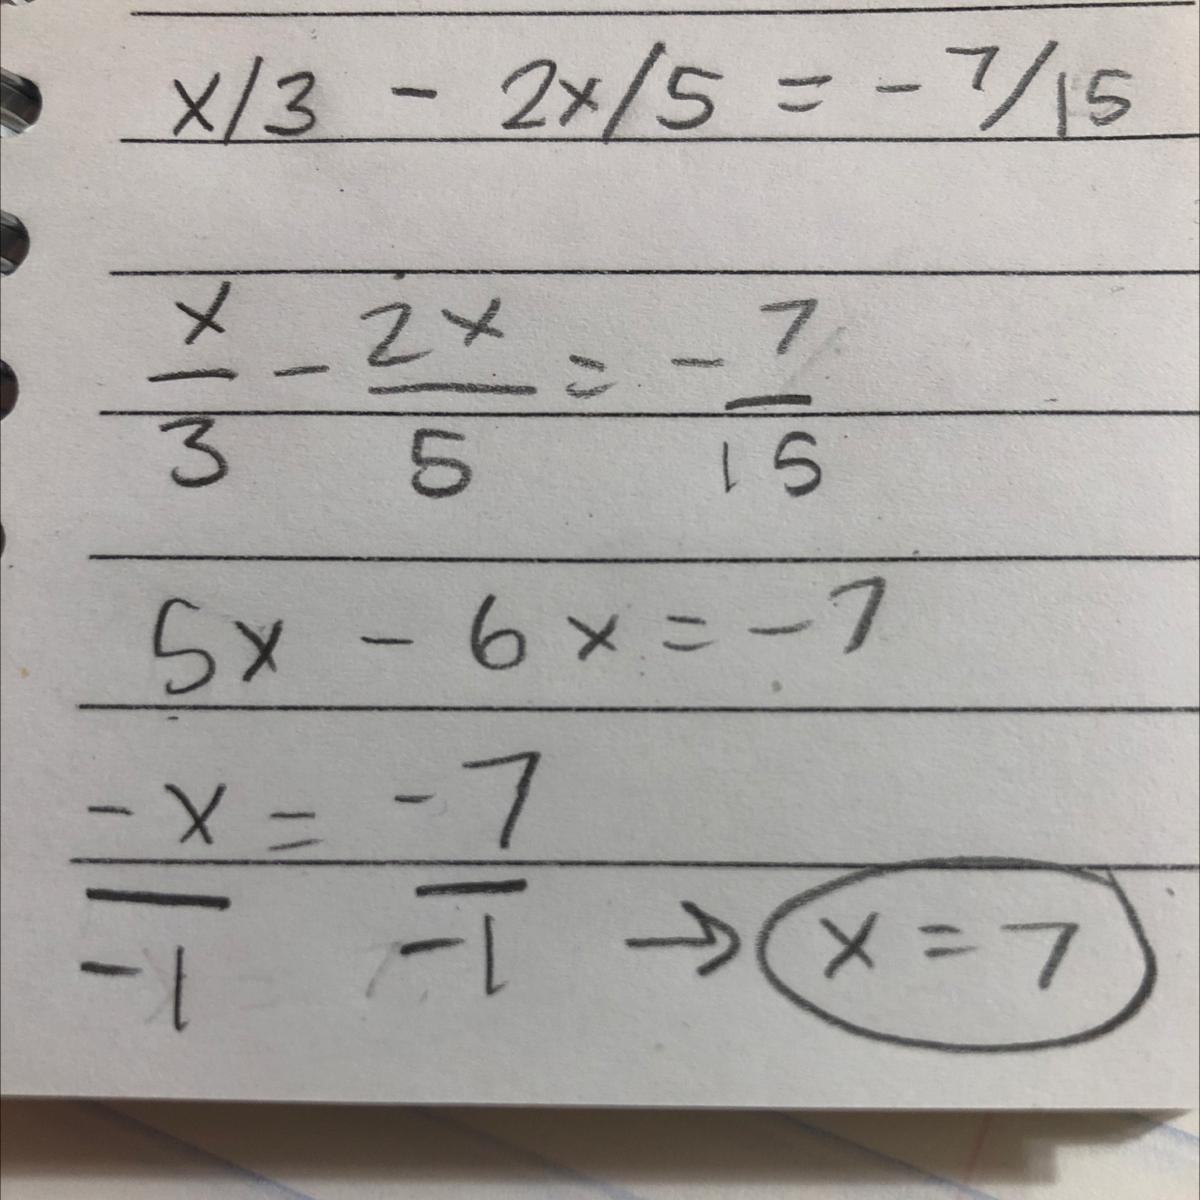 x/3 - 2x/5 = -7/15
x/3 - 2x/5 = -7/15
5x - 6x = -7
-x/-1 = -7/-1 → x = 7